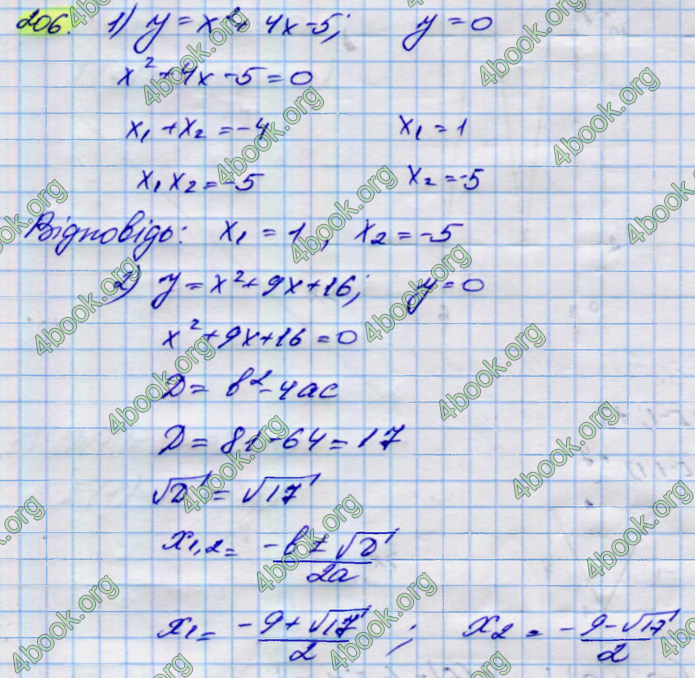 206. 1) y = x² + 4x - 5; y = 0
x² + 4x - 5 = 0
x₁ + x₂ = -4 x₁ = 1
x₁ x₂ = -5 x₂ = -5
Відповідь: x₁ = 1, x₂ = -5
2) y = x² + 9x + 16; y = 0
x² + 9x + 16 = 0
D = b² - 4ac
D = 81 - 64 = 17
√D = √17
x₁,₂ = (-b ± √D)/2a
x₁ = (-9 + √17)/2; x₂ = (-9 - √17)/2
4book.org